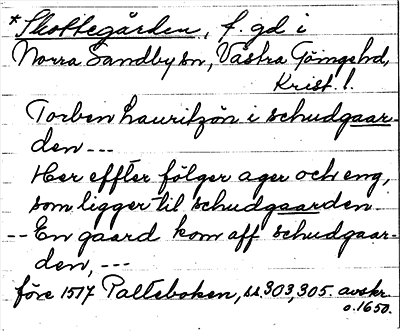 *Skottegården, f. gd i
Norra Sandby sn, Västra Göingehd,
Krist. l.
Torben Lauritzön i schudgaar-
den ---
Her effter fölger ager och eng,
som ligger til schudgaarden
-- En gaard kom aff schudgaar-
den, ---
före 1517 Palteboken, ss 303, 305. avskr.
o. 1650.